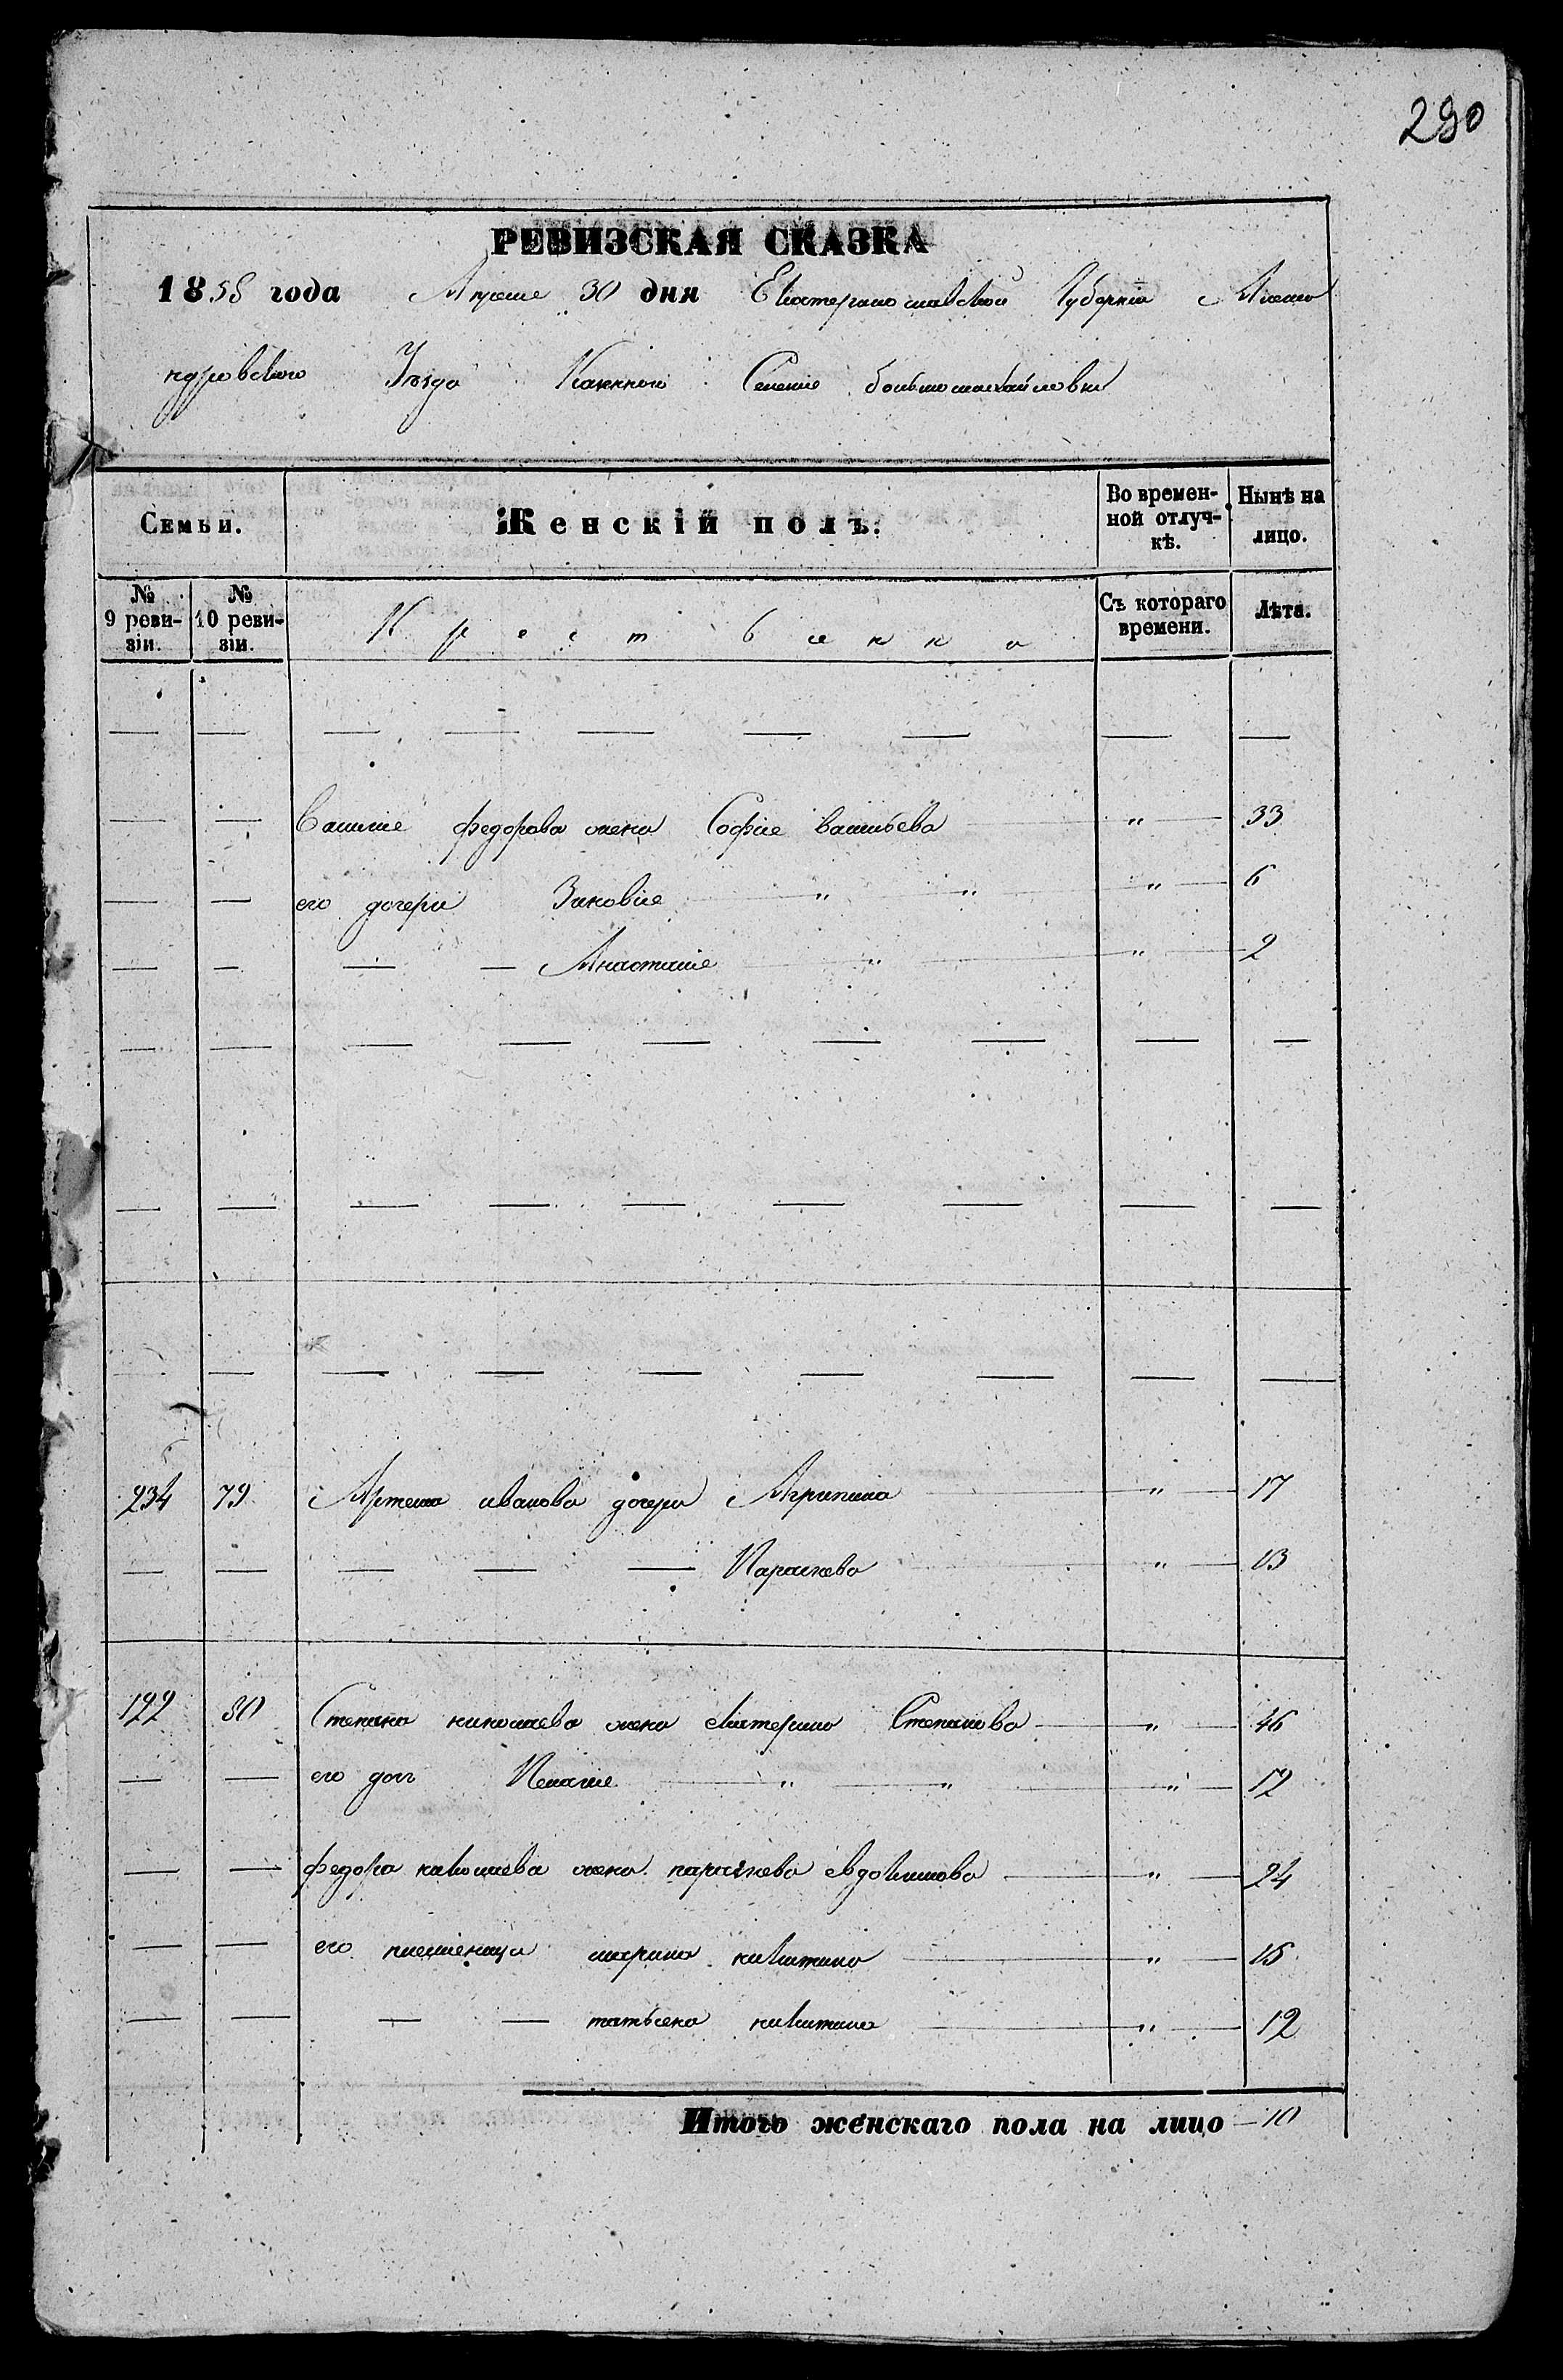 290
РЕВИЗСКАЯ СКАЗКА
1858 года Апреле 30 дня Екатеринославской Губернiи Алекса
ндровского Уезда Казенного Селение большомихайловки
Семьи. Женскiй полъ. Во времен- Нынѣ на
ной отлуч- лицо.
кѣ.
№ № Крестьенка Съ котораго Лѣта.
9 реви- 10 реви- времени.
зiи. зiи.
— — — — — — — — —
— — Василие федорова жена Софие васильева „ — 33
— — его дочери Зиновие „ „ „ — 6
— — — — Анастасие „ „ — 2
— — — — — — — — —
— — — — — — — — —
— — — — — — — — —
234 79 Артема иванова дочери Агрипина — „ — 17
— — — — — Параскева „ — 13
122 80 Степана николаева жена екатерина Степанова — „ — 46
— — его доч Пелагие „ „ „ — 12
— — федора николаева жена парaскева евдокимова — „ — 24
— — его племеница марина никитина — „ — 15
— — — — татьена никитина — „ — 12
Итого женскаго пола на лицо — 10